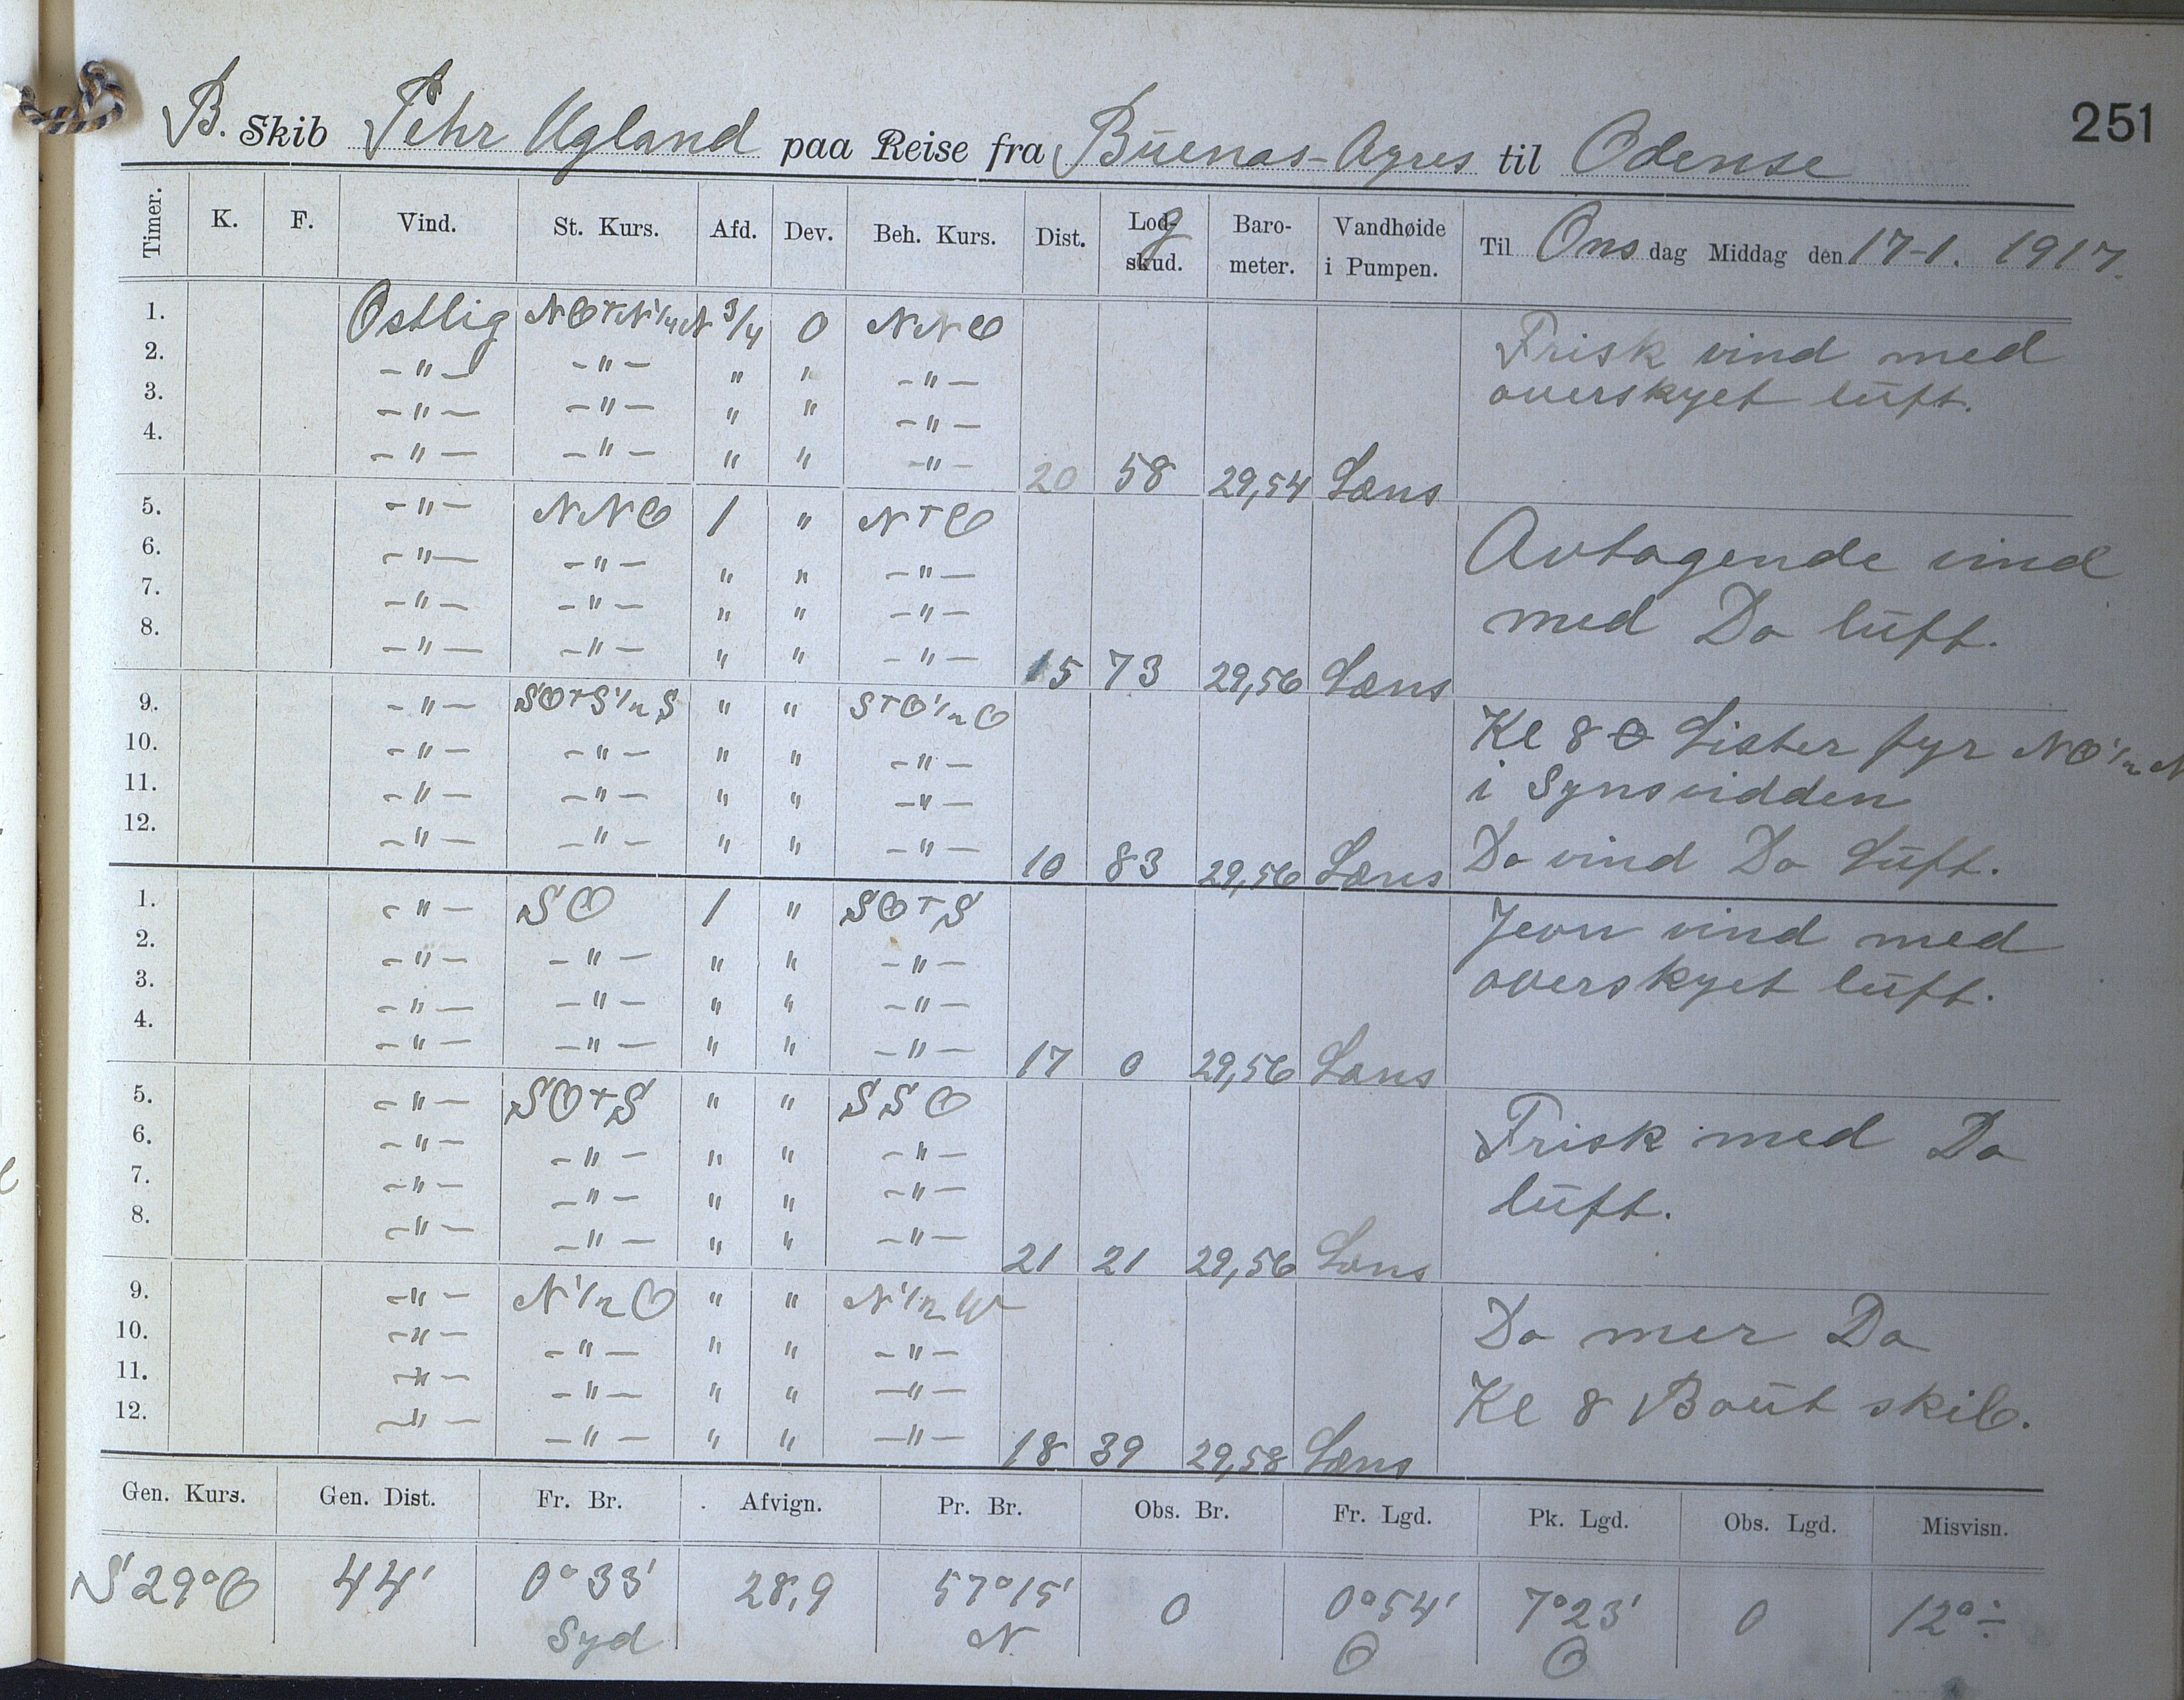 251
B. Skib Pehr Ugland paa Reise fra Buenos-Ayres til Odense
Timer. K. F. Vind. St. Kurs. Afd. Dev. Beh. Kurs. Dist. Lodg skud. Baro- meter. Vandhøide i Pumpen. Til Ons dag Middag den 17-1. 1917.
1. Ostlig NOTN 1/4 N 3/4 0 NNO Frisk vind med
2. -"- -"- " " -"- overskyet luft.
3. -"- -"- " " -"-
4. -"- -"- " " -"- 20 58 29,54 Læns
5. -"- NNO 1 " NTO Avtagende vind
6. -"- -"- " " -"-
7. -"- -"- " " -"- med Do luft.
8. -"- -"- " " -"- 15 73 29,56 Læns
9. -"- SOTS 1/2 S " " STO 1/2 O Kl 8 Lister fyr NO 1/2 N
10. -"- -"- " " -"- i Synsvidden
11. -"- -"- " " -"-
12. -"- -"- " " -"- 10 83 29,56 Læns Do vind Do Luft.
1. -"- SO 1 " SOTS Jevn vind med
2. -"- -"- " " -"- overskyet luft.
3. -"- -"- " " -"-
4. -"- -"- " " -"- 17 0 29,56 Læns
5. -"- SOTS " " SSO Frisk med Do
6. -"- -"- " " -"-
7. -"- -"- " " -"- luft.
8. -"- -"- " " -"- 21 21 29,56 Læns
9. -"- N 1/2 O " " N 1/2 W Do mer Do
10. -"- -"- " " -"-
11. -"- -"- " " -"- Kl 8 Baut skib.
12. -"- -"- " " -"- 18 39 29,58 Læns
Gen. Kurs. Gen. Dist. Fr. Br. Afvign. Pr. Br. Obs. Br. Fr. Lgd. Pk. Lgd. Obs. Lgd. Misvisn.
S 29° O 44' 0° 33' 28,9 57° 15' 0 0° 54' 7° 23' 0 12° ÷
Syd N O O